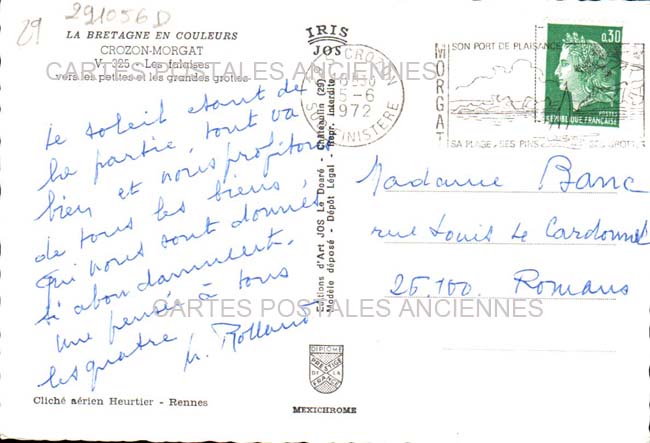 29
291056D
LA BRETAGNE EN COULEURS
CROZON-MORGAT
V. 325 - Les falaises
vers les petites et les grandes grottes
IRIS
JOS
CROZON
5-6
1972
FINISTERE
MORGAT
SON PORT DE PLAISANCE
SA PLAGE SES PINS
0,30
POSTES
REPUBLIQUE FRANÇAISE
CARTES POSTALES ANCIENNES
Le soleil étant de
la partie, tout va
bien et nous profitons
de tous les biens
qui nous sont donnés
si abondamment.
Une pensée à tous
les quatre,
M. Rolland
Editions d'Art JOS Le Doaré - Châteaulin (29)
Modèle déposé - Dépôt Légal - Repr. interdite
Madame Banc
rue Louis Le Cardonnel
26.100. Romans
CARTES POSTALES ANCIENNES
DIPLOME
PRESTIGE
DE LA
FRANCE
Cliché aérien Heurtier - Rennes
MEXICHROME